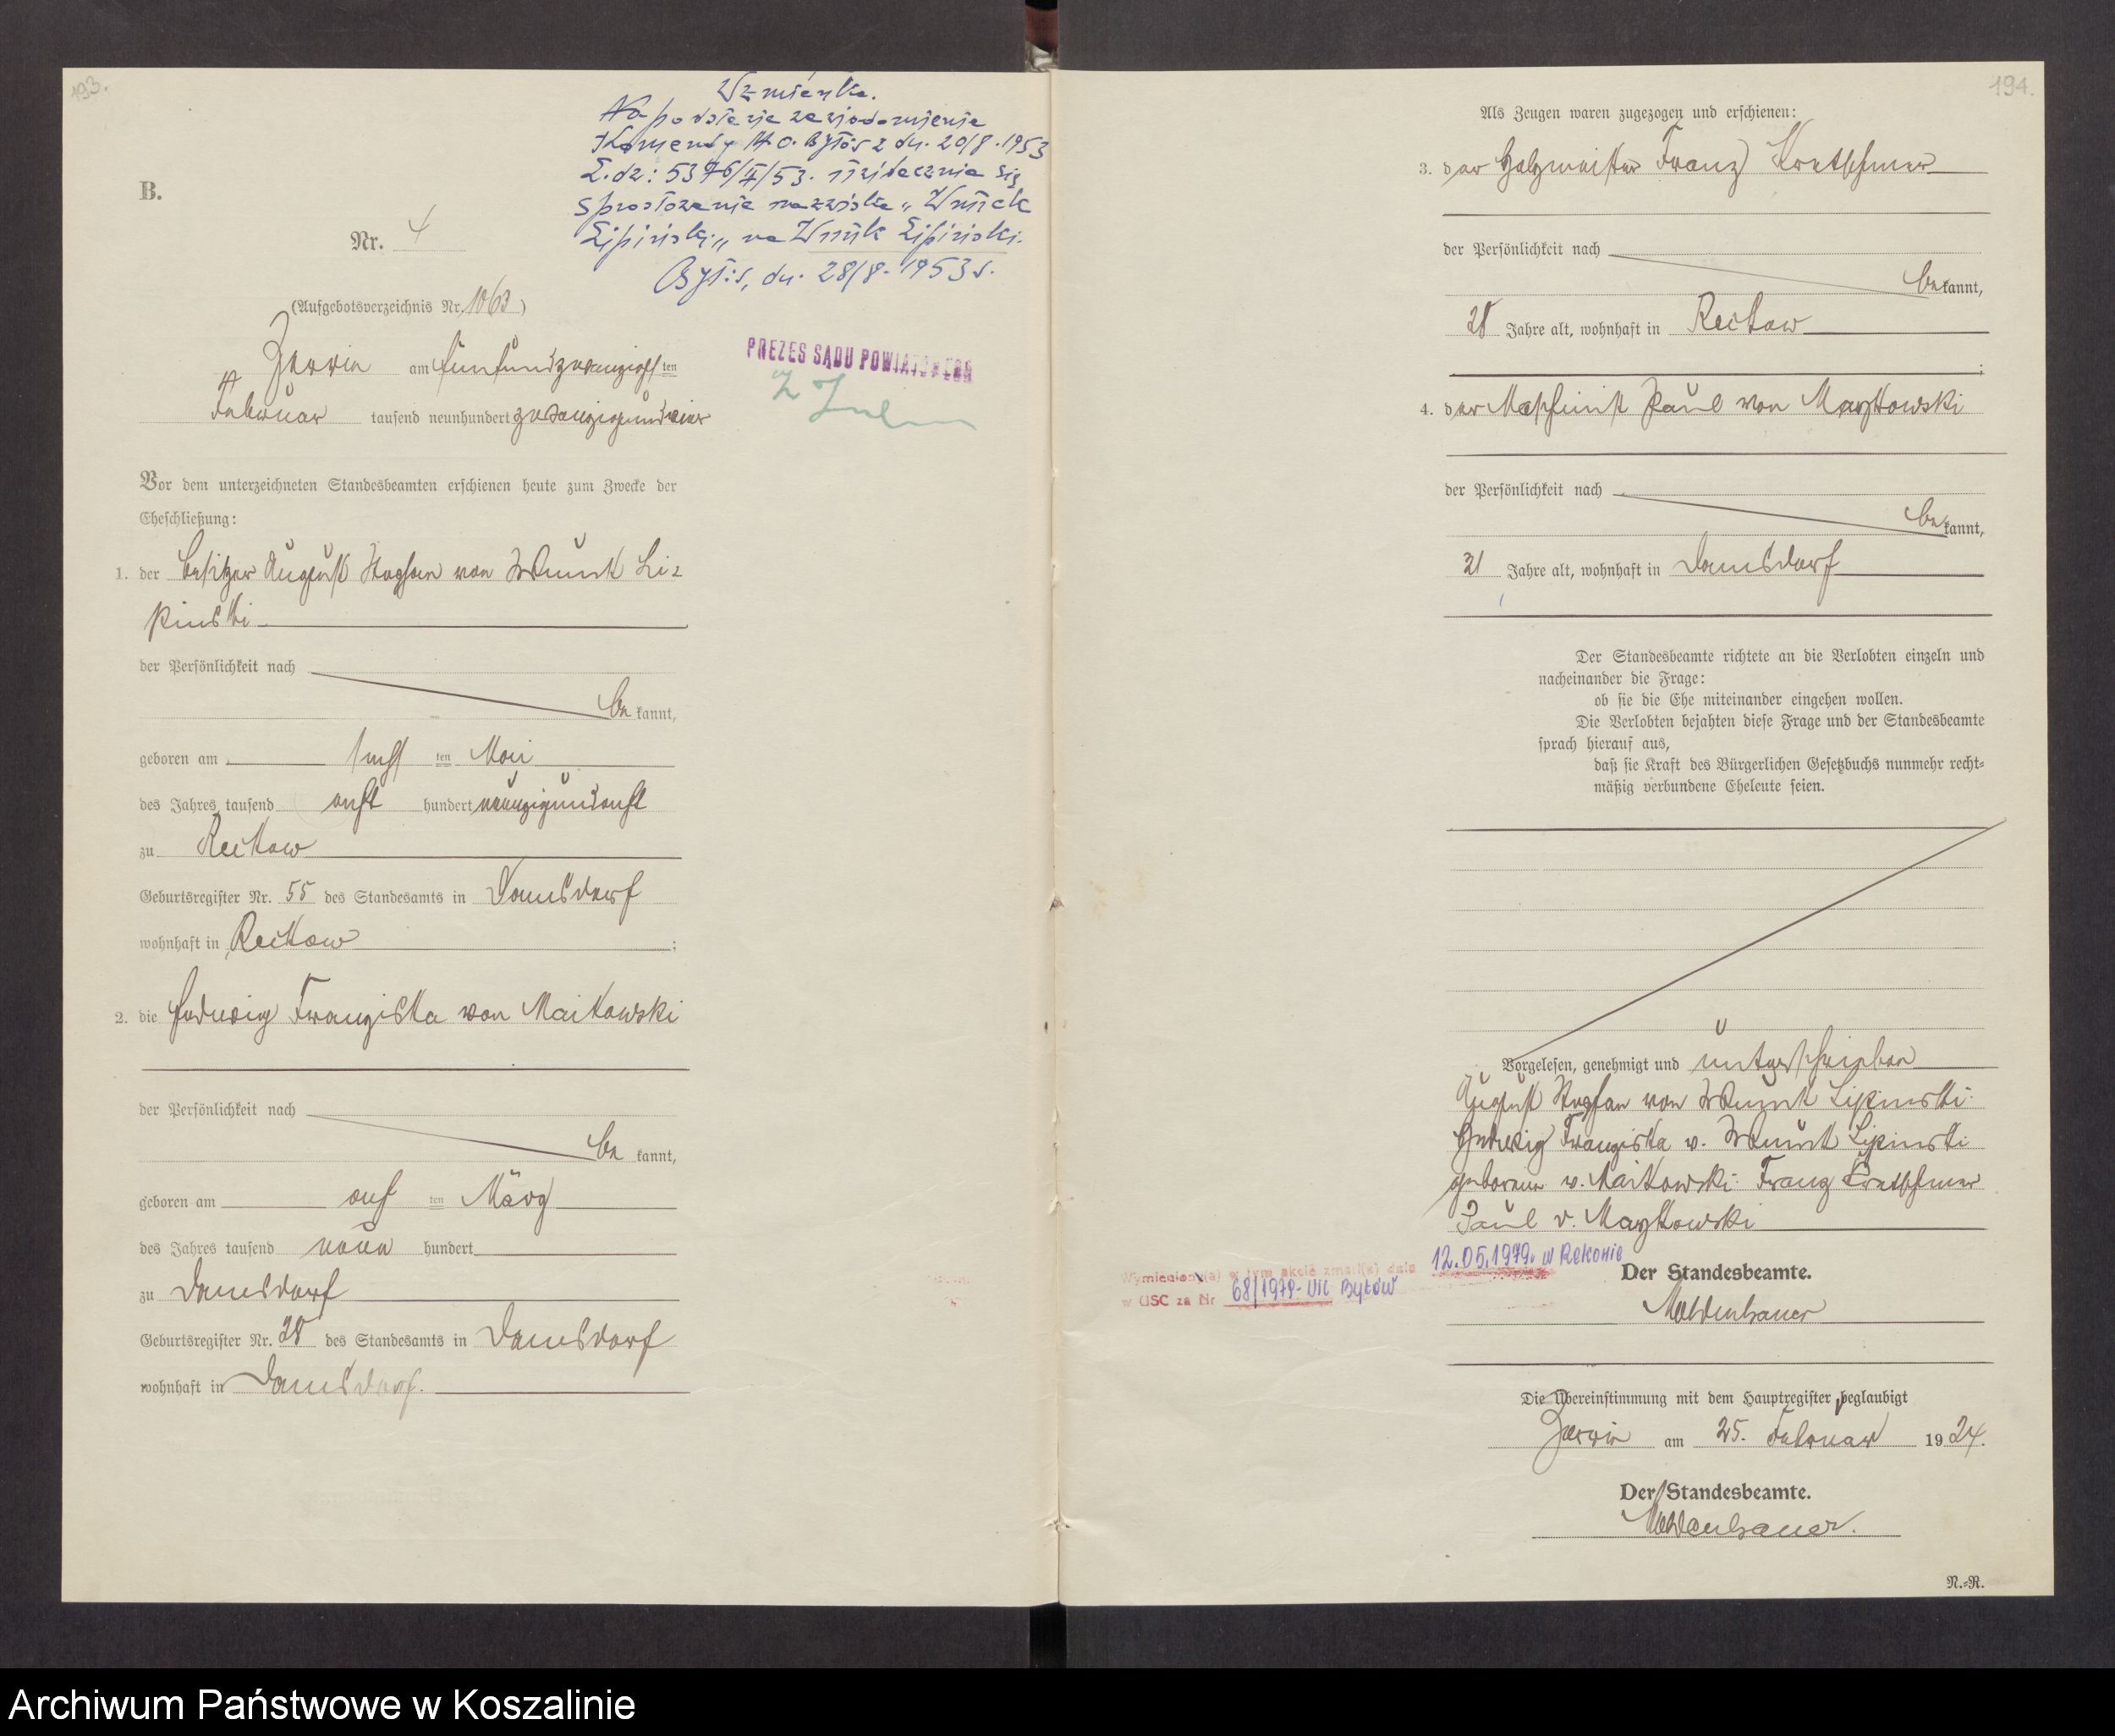 193.
B.
Nr. 4
Wzmianka.
Na podstawie zawiadomienia
Komendy M.O. Bytów z dn. 20/8.1953
L.dz: 5376/II/53. uwidacznia się
sprostowanie nazwiska „Wnuck
Lipiński„ na Wnuk Lipiński.
Bytów, dn. 28/8.1953 r.
PREZES SĄDU POWIATOWEGO
(Aufgebotsverzeichnis Nr. )
Zerrin am fünfundzwanzigsten
Februar tausend neunhundert zwanzigundvier
Vor dem unterzeichneten Standesbeamten erschienen heute zum Zwecke der
Eheschließung:
1. der Besitzer August Stephan von Wnuck Li=
pinski
der Persönlichkeit nach
bekannt,
geboren am sechsten Mai
des Jahres tausend acht hundert neunzigundacht
zu Reckow
Geburtsregister Nr. 55 des Standesamts in Damsdorf
wohnhaft in Reckow ;
2. die Hedwig Franziska von Maikowski
der Persönlichkeit nach
bekannt,
geboren am achten März
des Jahres tausend neun hundert
zu Damsdorf
Geburtsregister Nr. 28 des Standesamts in Damsdorf
wohnhaft in Damsdorf.
194.
Als Zeugen waren zugezogen und erschienen:
3. der Holzmeister Franz Kretschmer
der Persönlichkeit nach
bekannt,
28 Jahre alt, wohnhaft in Reckow
;
4. der Maschinist Paul von Maykowski
der Persönlichkeit nach
bekannt,
21 Jahre alt, wohnhaft in Damsdorf
Der Standesbeamte richtete an die Verlobten einzeln und
nacheinander die Frage:
ob sie die Ehe miteinander eingehen wollen.
Die Verlobten bejahten diese Frage und der Standesbeamte
sprach hierauf aus,
daß sie kraft des Bürgerlichen Gesetzbuchs nunmehr recht=
mäßig verbundene Eheleute seien.
Vorgelesen, genehmigt und unterschrieben
August Stephan von Wnuck Lipinski.
Hedwig Franziska v. Wnuck Lipinski
geborene v. Maikowski. Franz Kretschmer
Paul v. Maykowski
Wymieniony(a) w tym akcie zmarł(a) dnia 12.05.1979. w Rekowie
w USC za Nr 68/1979- USC Bytów
Der Standesbeamte.
Moldenhauer
Die Übereinstimmung mit dem Hauptregister beglaubigt
Zerrin am 25. Februar 1924.
Der Standesbeamte.
Moldenhauer.
N.=R.
Archiwum Państwowe w Koszalinie